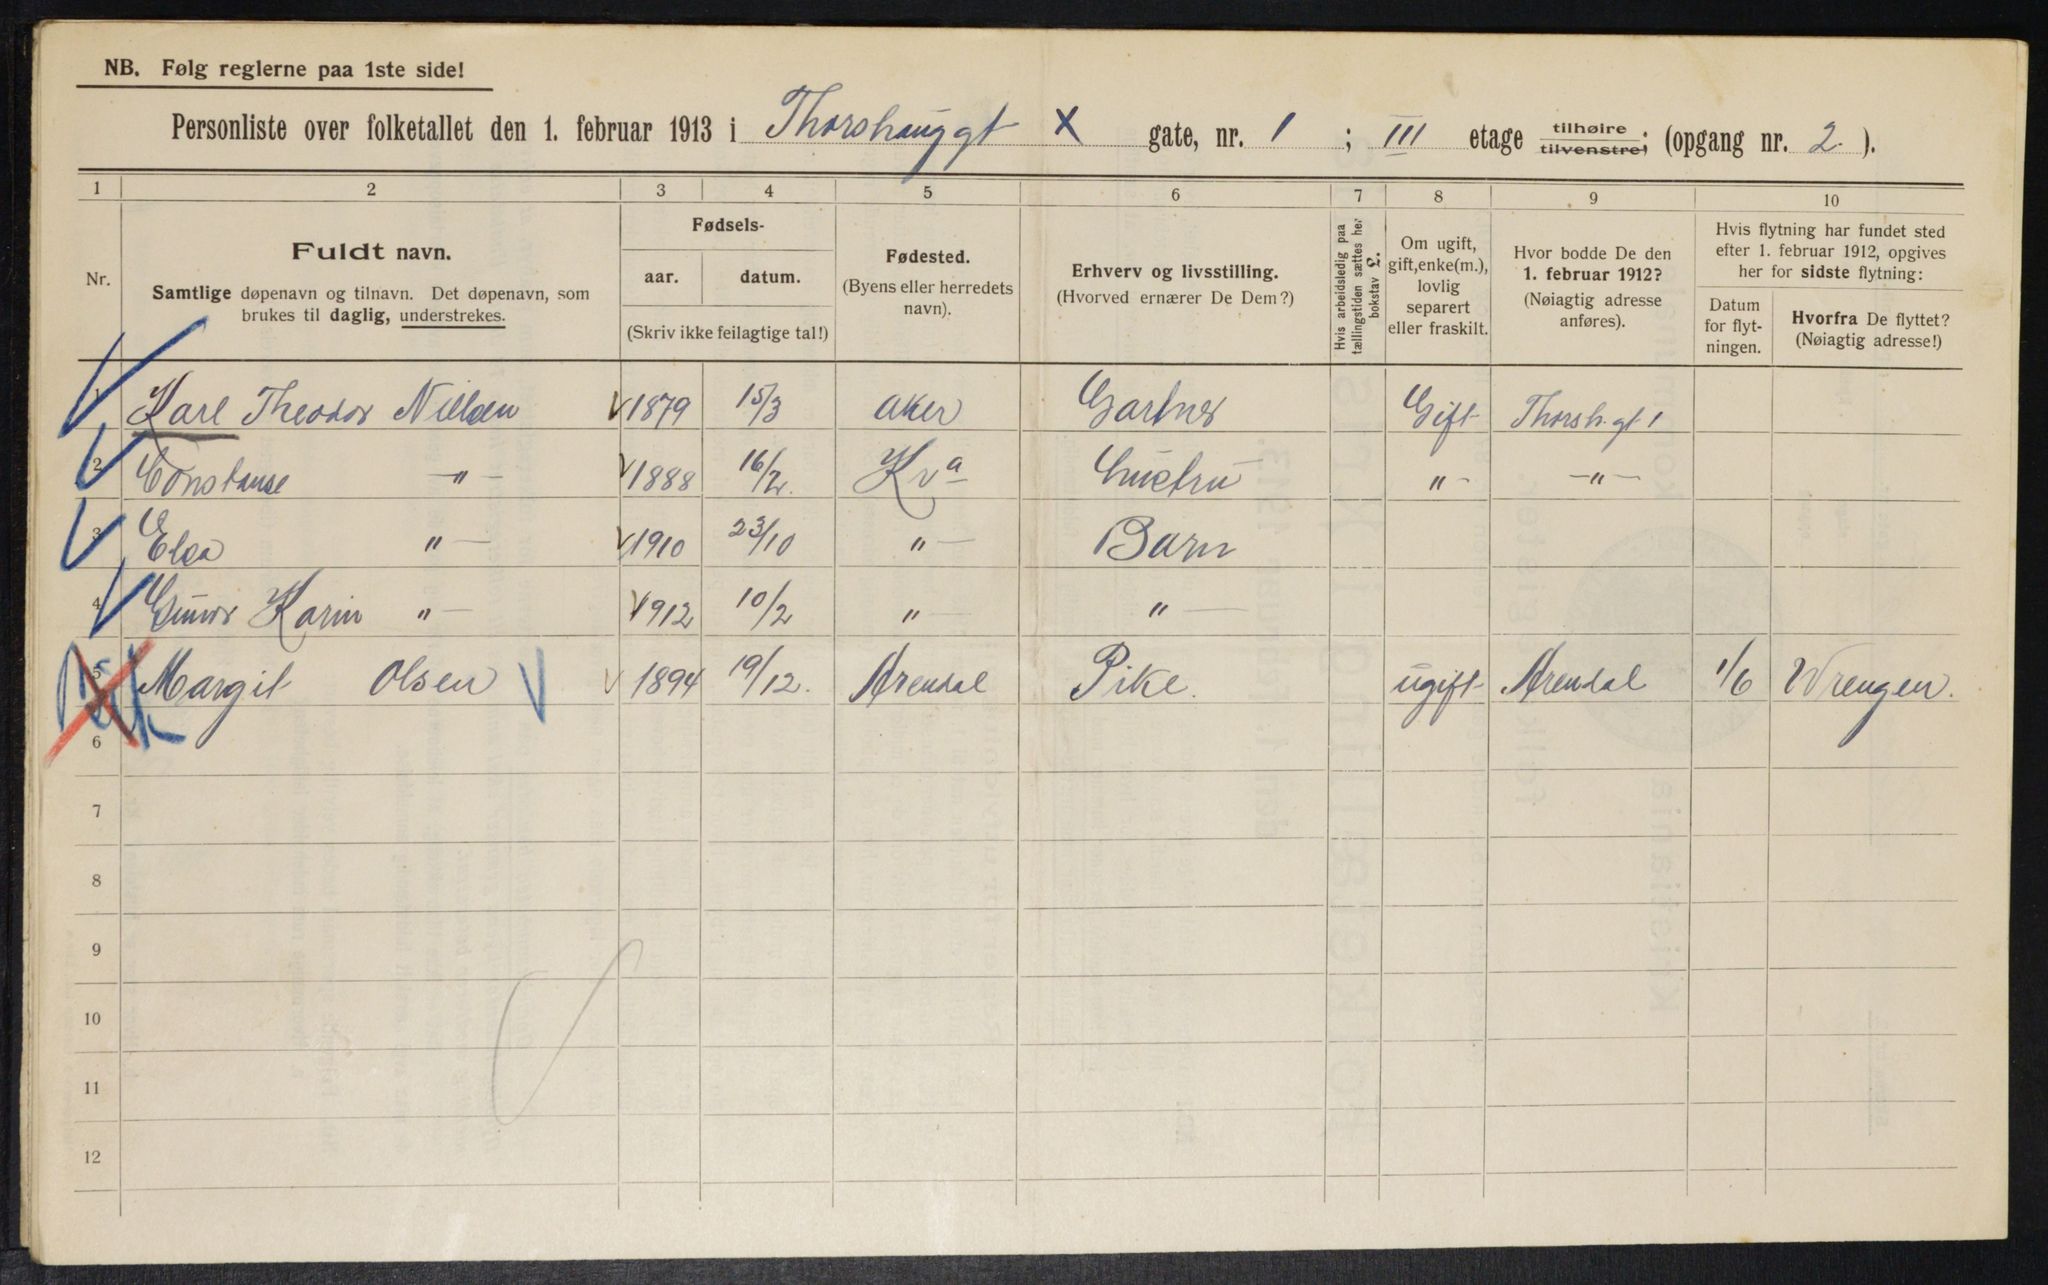 NB. Følg reglerne paa 1ste side!
Personliste over folketallet den 1. februar 1913 i Thorshauggt X gate, nr. 1 ; III etage tilhøire tilvenstre; (opgang nr. 2.).
1 2 3 4 5 6 7 8 9 10
Nr.
Fuldt navn.
Samtlige døpenavn og tilnavn. Det døpenavn, som
brukes til daglig, understrekes.
Fødsels-
aar. datum.
(Skriv ikke feilagtige tal!)
Fødested.
(Byens eller herredets
navn).
Erhverv og livsstilling.
(Hvorved ernærer De Dem?)
Hvis arbeidsledig paa
tællingstiden sættes her
bokstav L.
Om ugift,
gift, enke(m.),
lovlig
separert
eller fraskilt.
Hvor bodde De den
1. februar 1912?
(Nøiagtig adresse
anføres).
Hvis flytning har fundet sted
efter 1. februar 1912, opgives
her for sidste flytning:
Datum
for flyt-
ningen.
Hvorfra De flyttet?
(Nøiagtig adresse!)
1 Karl Theodor Nielsen 1879 15/3 Aker Gartner Gift Thorsh.gt 1
2 Constanse -"- 1888 16/2. Kr a Hustru "- -"-
3 Elsa "- 1910 23/10 "- Barn
4 Karin "- 1912 10/2 "- "-
5 Margit Olsen 1894 19/12. Arendal Pike. ugift Arendal 1/6 Wrengen.
6
7
8
9
10
11
12